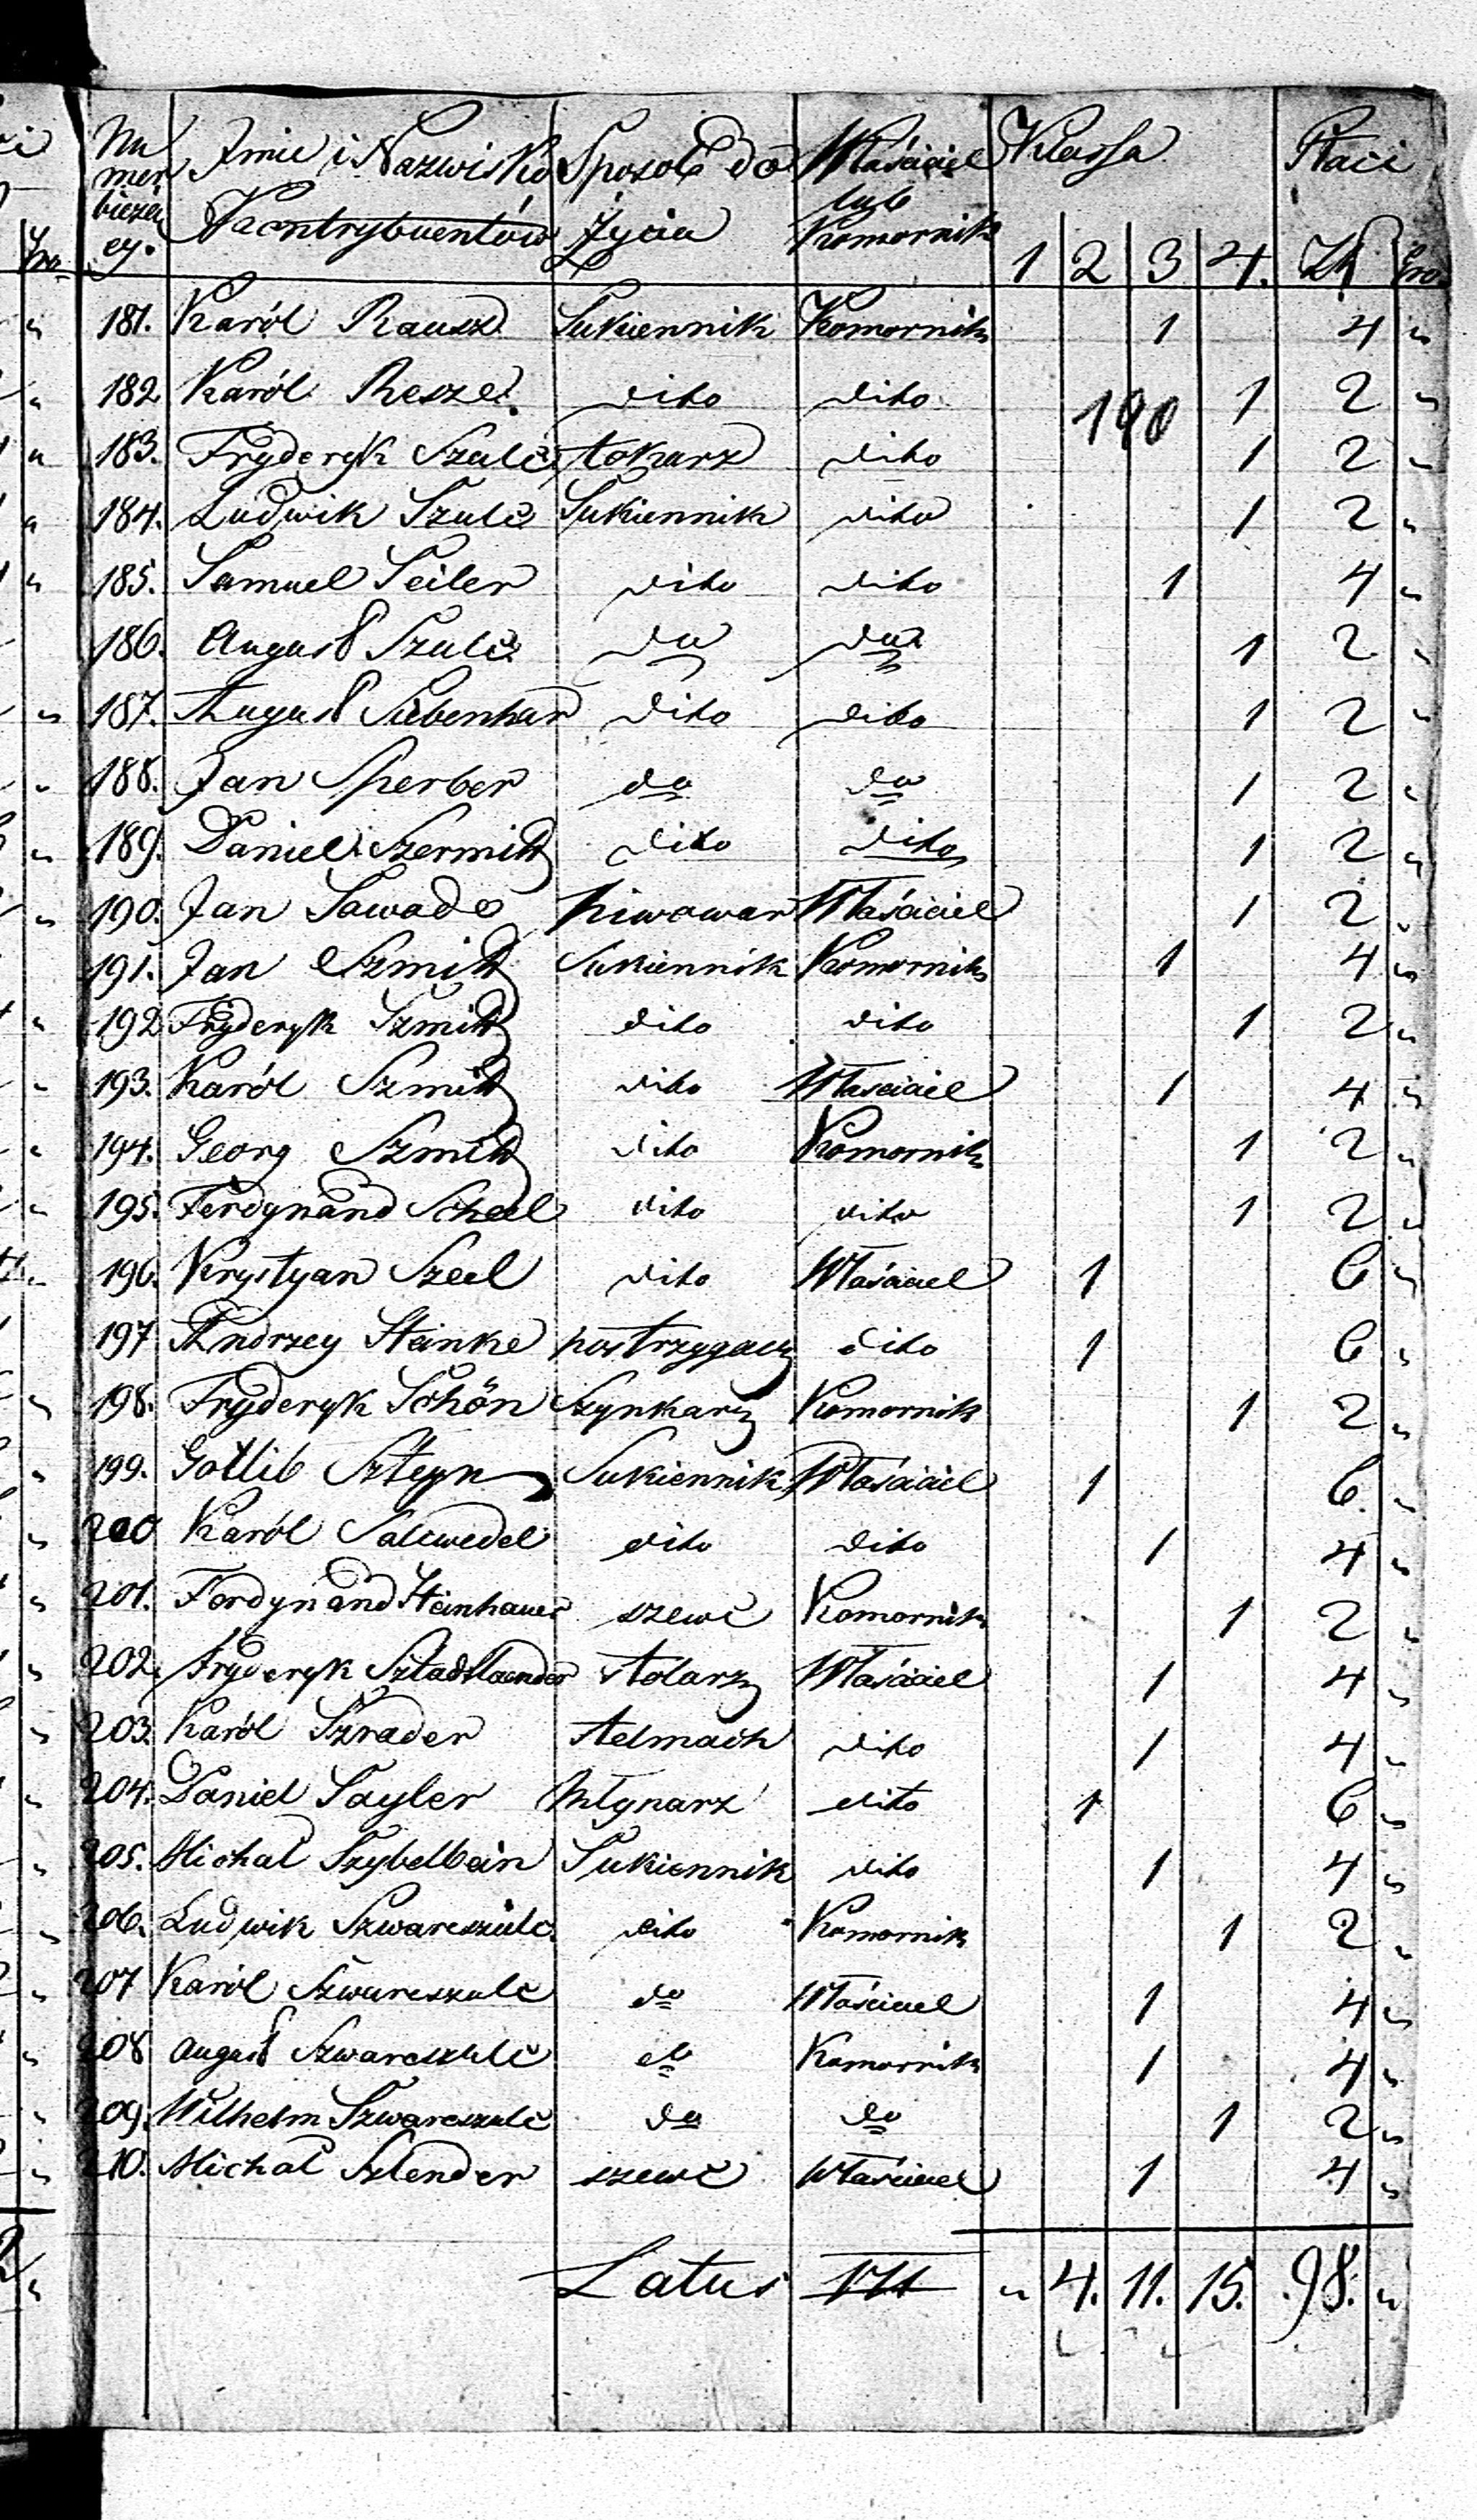 Nu mer bieżą cy. Imie i Nazwisko Kontrybuentów Sposób do Życia Właściciel lub Komornik Klassa 1 2 3 4. Płaci Zł Gro.
181. Karól Rausz Sukiennik Komornik 1 4 "
182 Karól Resze. dito dito 1 2 "
190
183. Fryderyk Szulc tokarz dito 1 2 "
184. Ludwik Szulc Sukiennik dito 1 2 "
185. Samuel Seiler dito dito 1 4 "
186. August Szulc do do 1 2 "
187. August Siebenhar dito dito 1 2 "
188. Jan Sperber do do 1 2 "
189. Daniel Szermitt dito dito 1 2 "
190. Jan Sawade Piwowar Właściciel 1 2 "
191. Jan Szmitt Sukiennik Komornik 1 4 "
192 Fryderyk Szmitt dito dito 1 2 "
193. Karól Szmitt dito Właściciel 1 4 "
194. Georg Szmitt dito Komornik 1 2 "
195. Ferdynand Scheel dito dito 1 2 "
196. Krystyan Szeel dito Właściciel 1 6 "
197 Andrzey Steinke postrzygacz dito 1 6 "
198. Fryderyk Schön Szynkarz Komornik 1 2 "
199. Gotlib Szteyn Sukiennik Właściciel 1 6. "
200 Karól Salcwedel dito dito 1 4 "
201. Ferdynand Steinhauer szewc Komornik 1 2 "
202. Fryderyk Sztadtlaender stolarz Właściciel 1 4 "
203. Karól Szrader stelmach dito 1 4 "
204. Daniel Sayler Młynarz dito 1 6 "
205. Michał Szybelbein Sukiennik dito 1 4 "
206. Ludwik Szwarcszulc dito Komornik 1 2 "
207 Karól Szwarcszulc do Właściciel 1 4 "
208 August Szwarcszulc do Komornik 1 4 "
209. Wilhelm Szwarcszulc do do 1 2 "
210. Michał Szlender szewc Właściciel 1 4 "
Latus " 4. 11. 15. 98. "